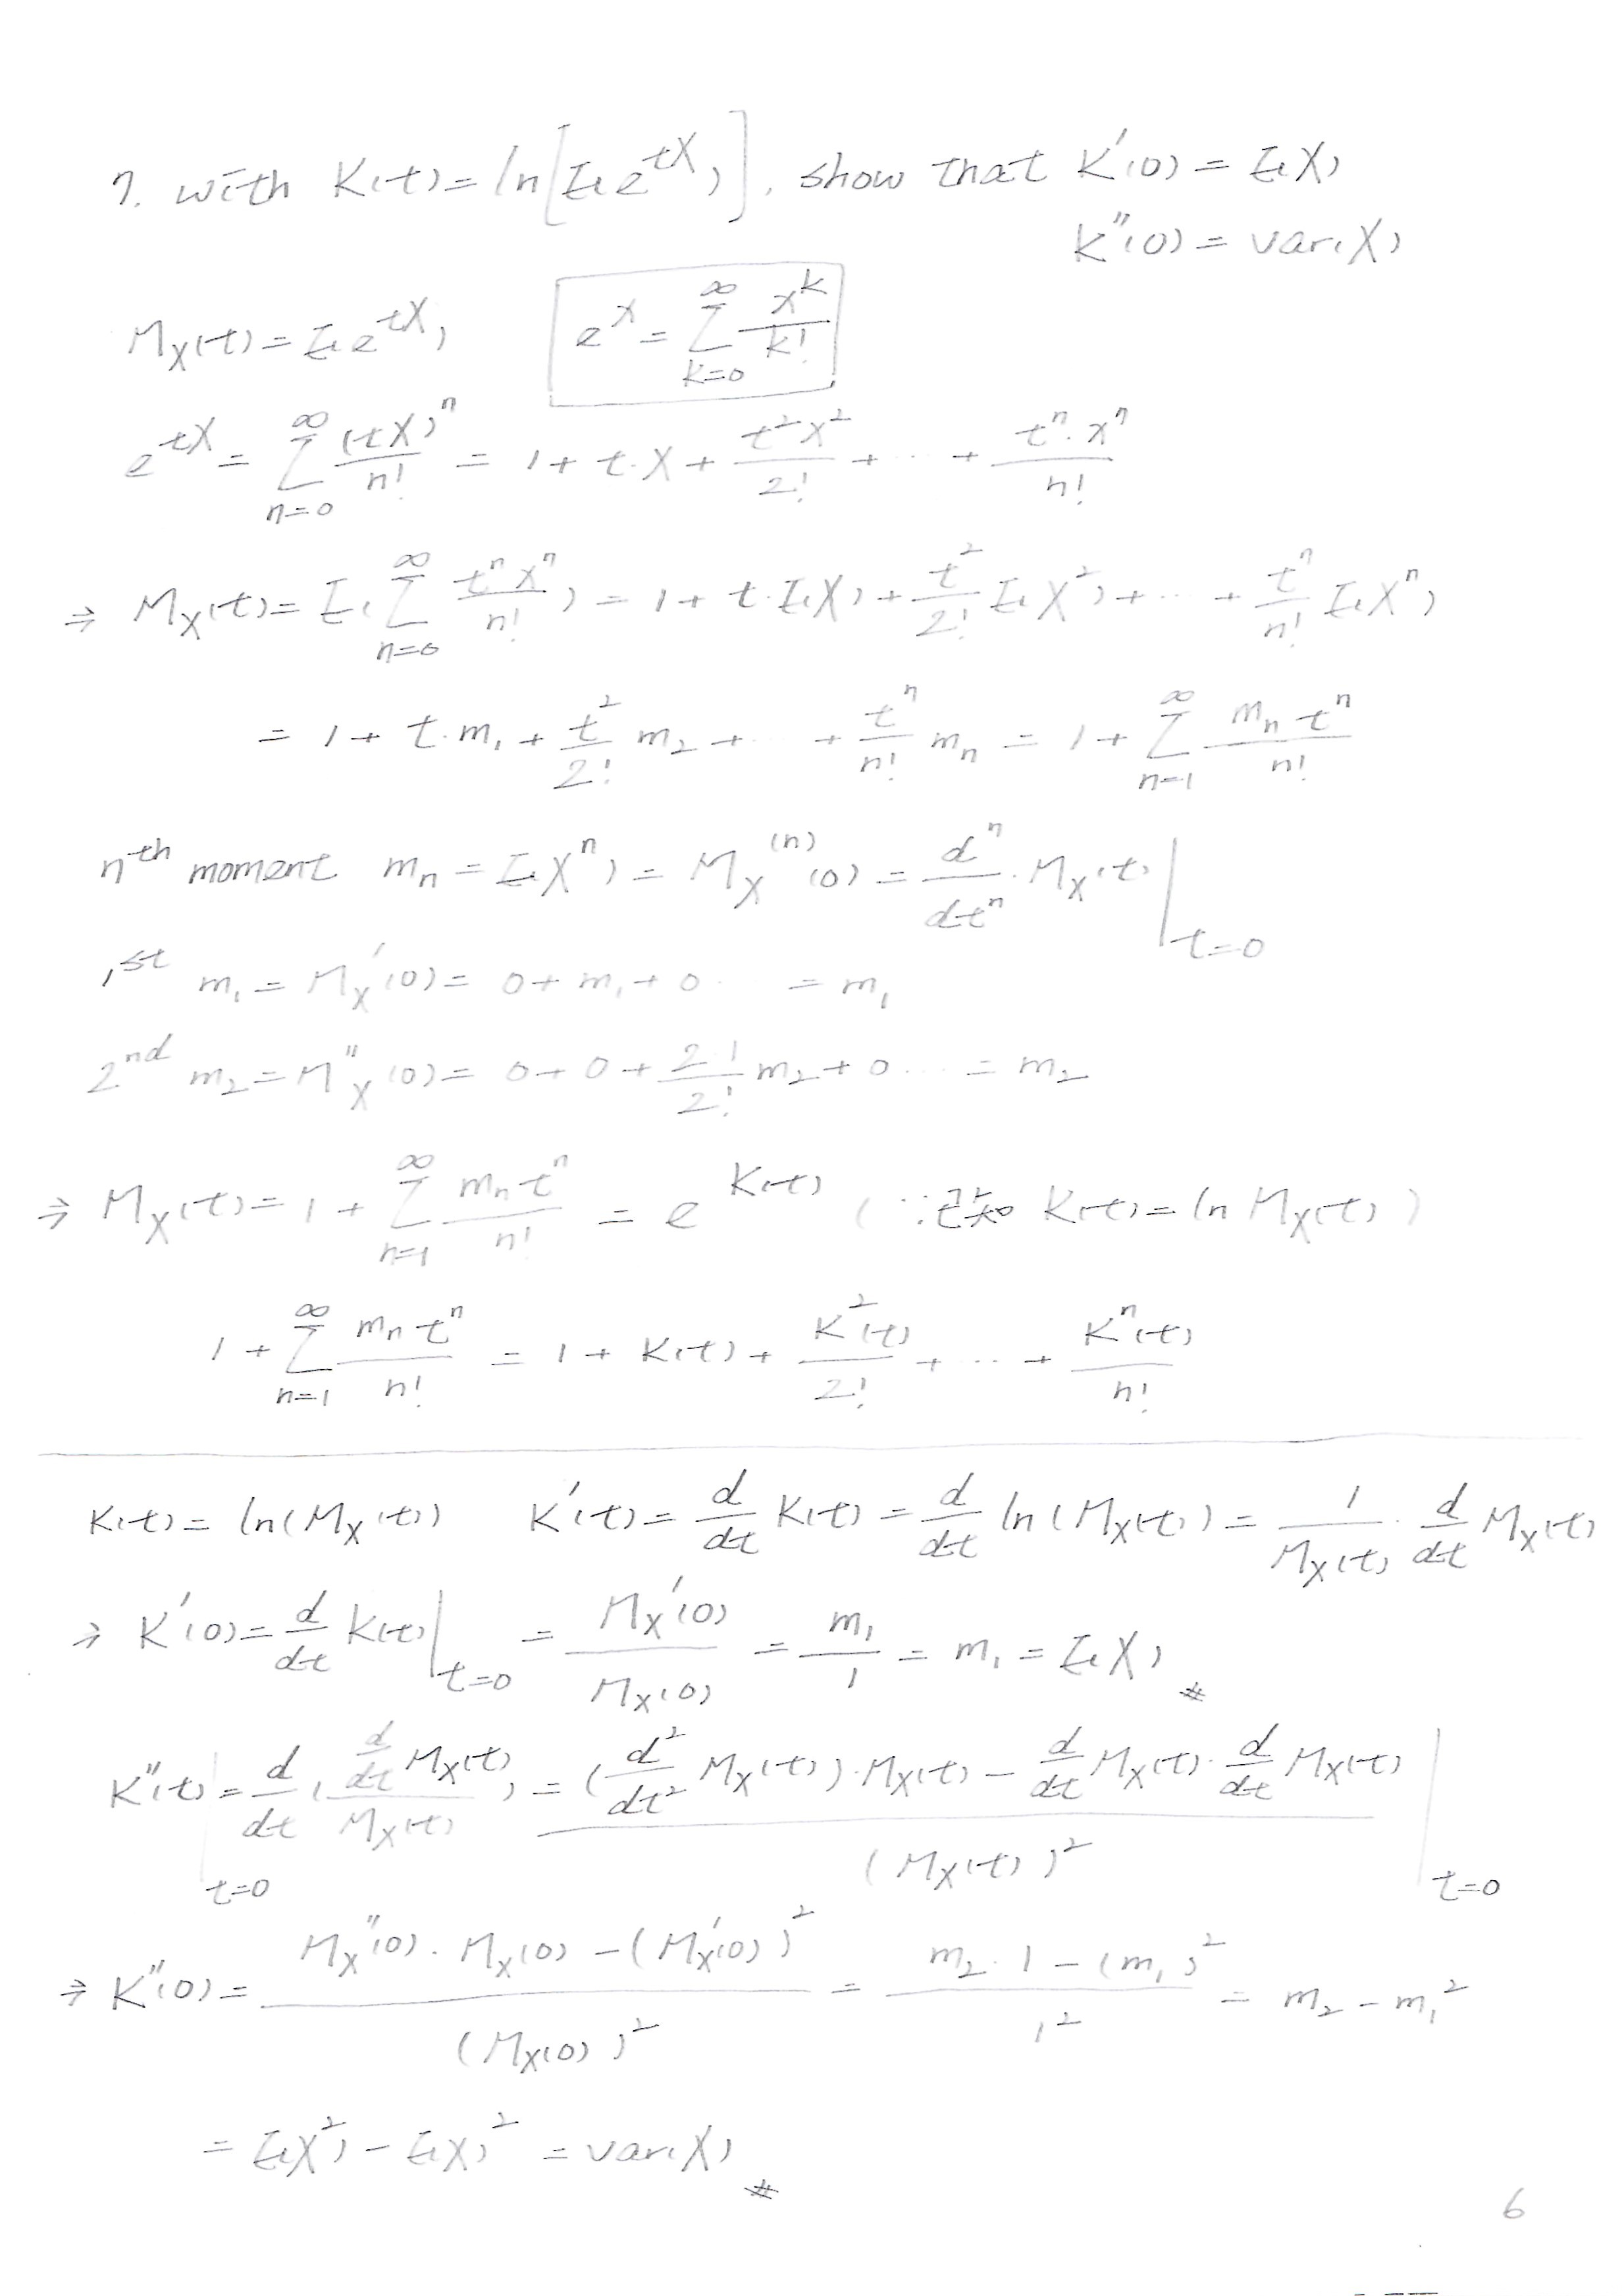 7. with K(t) = ln[E(e^{tX})], show that K'(0) = E(X)
K''(0) = var(X)
M_X(t) = E(e^{tX})    e^x = \sum_{k=0}^{∞} \frac{x^k}{k!}
e^{tX} = \sum_{n=0}^{∞} \frac{(tX)^n}{n!} = 1 + t·X + \frac{t^2 X^2}{2!} + ... + \frac{t^n · X^n}{n!}
⇒ M_X(t) = E(\sum_{n=0}^{∞} \frac{t^n X^n}{n!}) = 1 + t·E(X) + \frac{t^2}{2!} E(X^2) + ... + \frac{t^n}{n!} E(X^n)
= 1 + t·m_1 + \frac{t^2}{2!} m_2 + ... + \frac{t^n}{n!} m_n = 1 + \sum_{n=1}^{∞} \frac{m_n t^n}{n!}
n^{th} moment m_n = E(X^n) = M_X^{(n)}(0) = \frac{d^n}{dt^n} · M_X(t) |_{t=0}
1^{st} m_1 = M_X'(0) = 0 + m_1 + 0 ... = m_1
2^{nd} m_2 = M_X''(0) = 0 + 0 + \frac{2·1}{2!} m_2 + 0 ... = m_2
⇒ M_X(t) = 1 + \sum_{n=1}^{∞} \frac{m_n t^n}{n!} = e^{K(t)} (∵已知 K(t) = ln M_X(t))
1 + \sum_{n=1}^{∞} \frac{m_n t^n}{n!} = 1 + K(t) + \frac{K^2(t)}{2!} + ... + \frac{K^n(t)}{n!}
K(t) = ln(M_X(t))    K'(t) = \frac{d}{dt} K(t) = \frac{d}{dt} ln(M_X(t)) = \frac{1}{M_X(t)} · \frac{d}{dt} M_X(t)
⇒ K'(0) = \frac{d}{dt} K(t) |_{t=0} = \frac{M_X'(0)}{M_X(0)} = \frac{m_1}{1} = m_1 = E(X) #
K''(t) |_{t=0} = \frac{d}{dt} (\frac{\frac{d}{dt} M_X(t)}{M_X(t)}) = \frac{(\frac{d^2}{dt^2} M_X(t)) · M_X(t) - \frac{d}{dt} M_X(t) · \frac{d}{dt} M_X(t)}{(M_X(t))^2} |_{t=0}
⇒ K''(0) = \frac{M_X''(0) · M_X(0) - (M_X'(0))^2}{(M_X(0))^2} = \frac{m_2 · 1 - (m_1)^2}{1^2} = m_2 - m_1^2
= E(X^2) - E(X)^2 = var(X) #
6